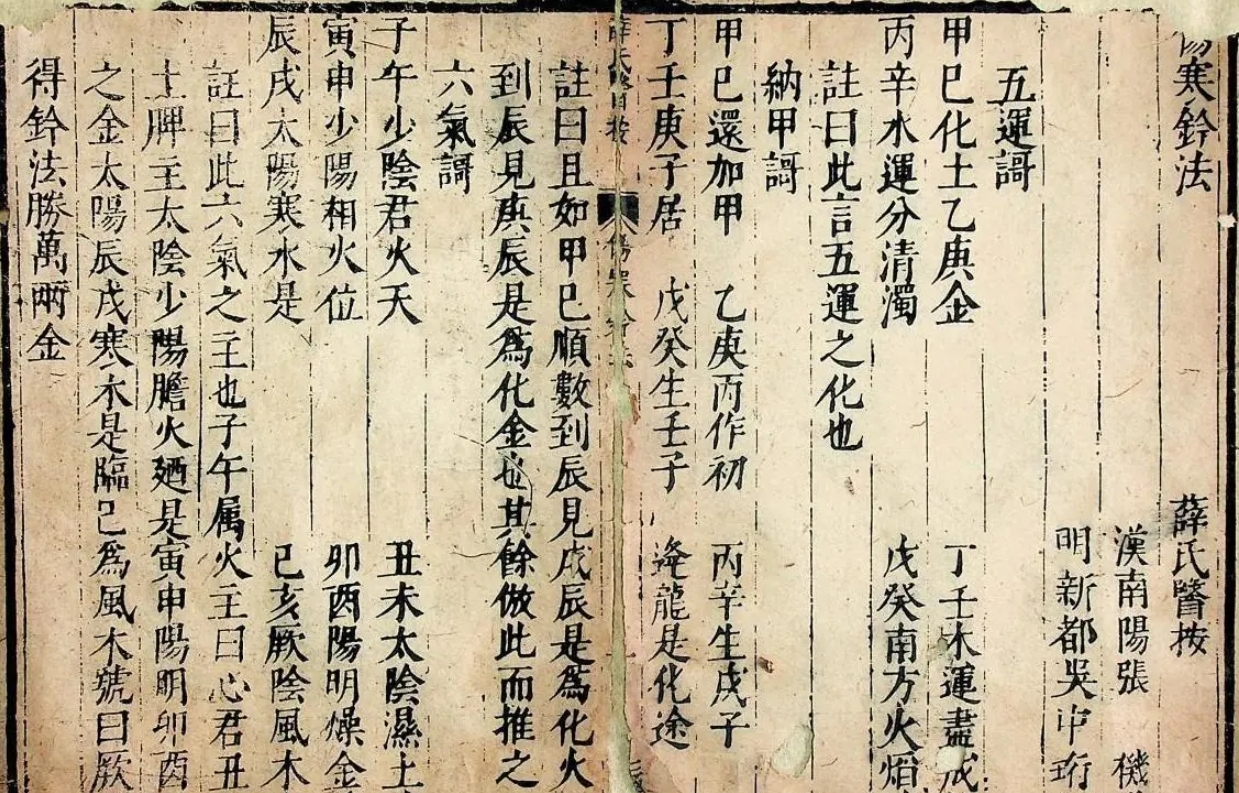 傷寒鈐法
薛氏醫按
漢南陽張　機
明新都吳中珩
五運謌
甲巳化土乙庚金　丁壬木運盡成
丙辛水運分清濁　戊癸南方火焰
註曰此言五運之化也
納甲謌
甲巳還加甲　乙庚丙作初　丙辛生戊子
丁壬庚子居　戊癸生壬子　逄龍是化途
註曰且如甲巳順數到辰見戊辰是為化火
到辰見庚辰是為化金也其餘倣此而推之
六氣謌
子午少陰君火天　丑未太陰濕土
寅申少陽相火位　卯酉陽明燥金
辰戌太陽寒水是　巳亥厥陰風木
註曰此六氣之主也子午属火主曰心君丑
土脾主太陰少陽膽火廼是寅申陽明卯酉
之金太陽辰戌寒水是臨巳為風木號曰厥
得鈐法勝萬兩金